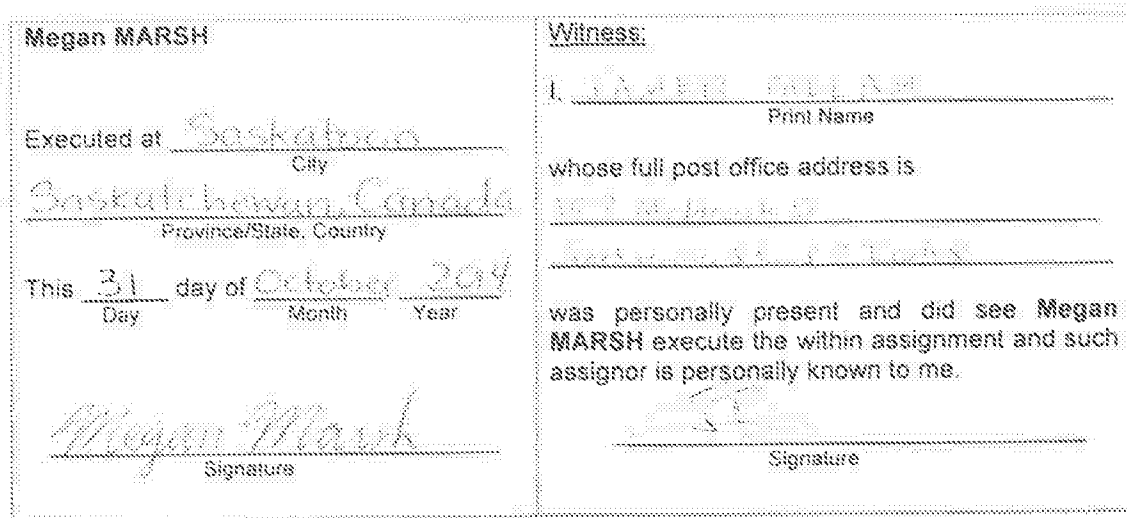 Megan MARSH
Executed at Saskatoon
City
Saskatchewan, Canada
Province/State, Country
This 31 day of October 2014
Day Month Year
Megan Marsh
Signature
Witness:
I,
Print Name
whose full post office address is
was personally present and did see Megan
MARSH execute the within assignment and such
assignor is personally known to me.
Signature